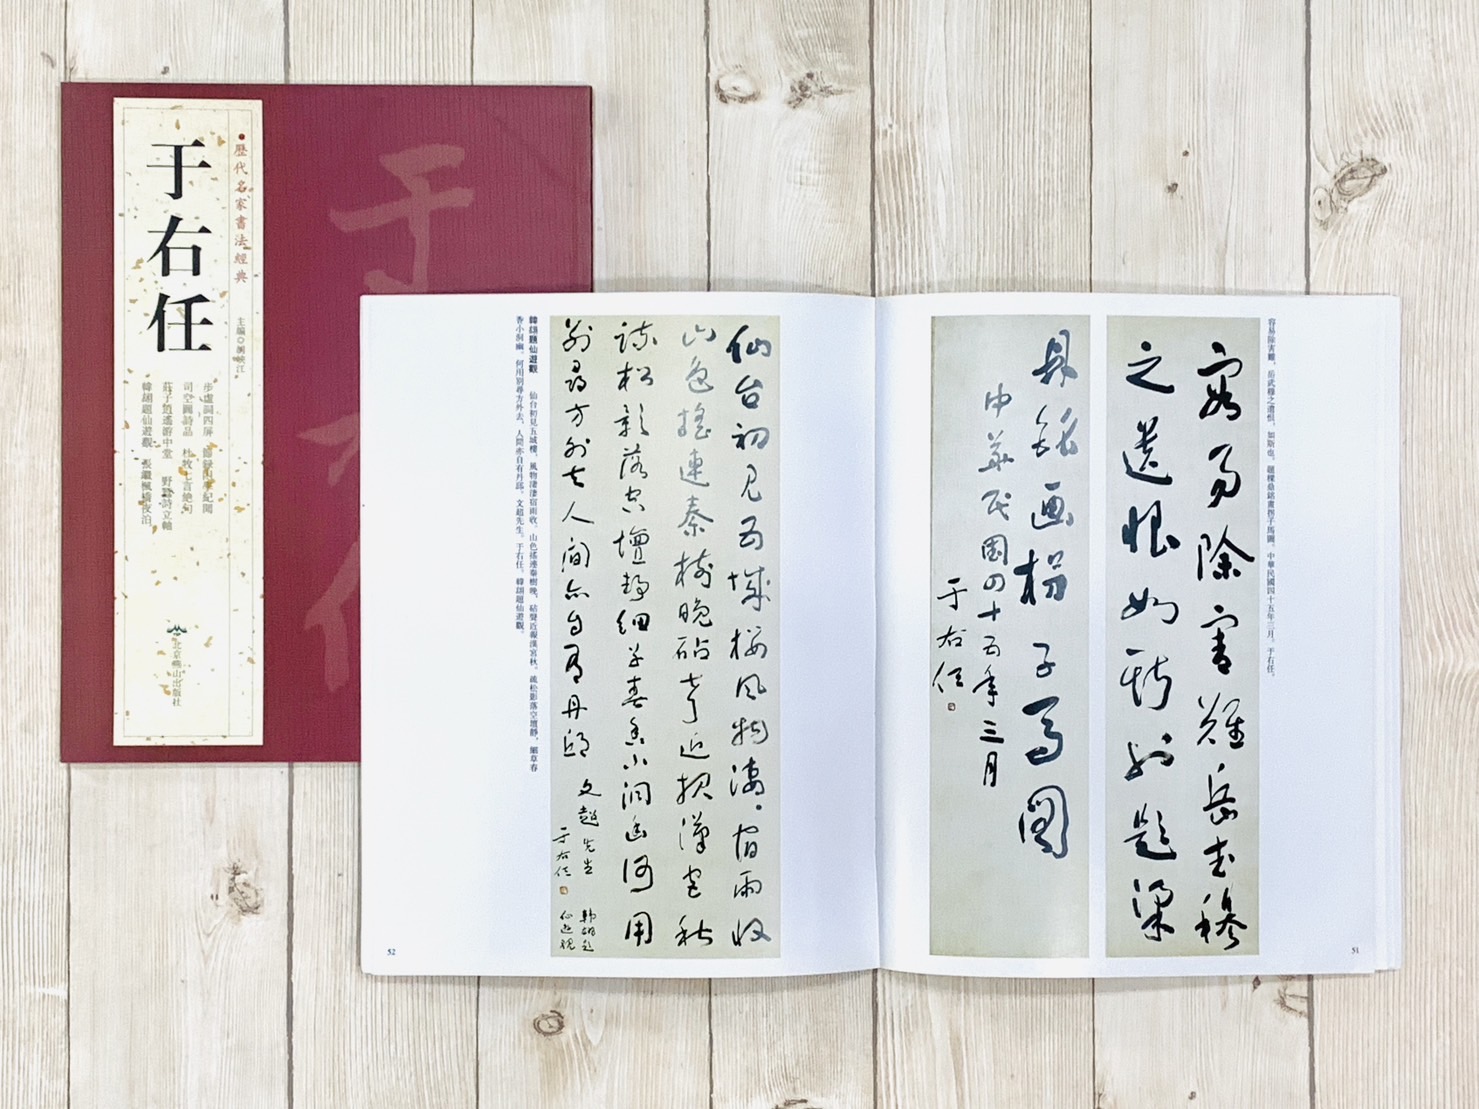 于右任
歷代名家書法經典
主編◎胡峽江
步虛詞四屏 節錄山季紀聞
司空圖詩品 杜牧七言絕句
莊子逍遙游中堂 野臥詩立軸
韓翃題仙遊觀 張繼楓橋夜泊
北京燕山出版社
于右任
容易除害難，岳武穆之遺恨，如斯也。題樑鼎銘畫拐子馬圖。中華民國四十五年三月。于右任。
容易除害難岳武穆
之遺恨如斯也題梁
鼎銘画拐子馬圖
中華民國四十五年三月
于右任
51
韓翃題仙遊觀 仙台初見五城樓，風物淒淒宿雨收。山色遙連秦樹晚，砧聲近報漢宮秋。疏松影落空壇靜，細草春
香小洞幽。何用別尋方外去，人間亦自有丹邱。文超先生。于右任。韓翃題仙遊觀。
仙台初見五城樓風物淒淒宿雨收
山色遙連秦樹晚砧聲近報漢宮秋
疏松影落空壇靜細草春香小洞幽何用
別尋方外去人間亦自有丹邱
文超先生
于右任
韓翃題
仙遊觀
52